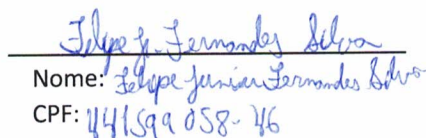 Felipe Jr. Fernandes Silva
Nome: Felipe Junior Fernandes Silva
CPF: 441599 058-46